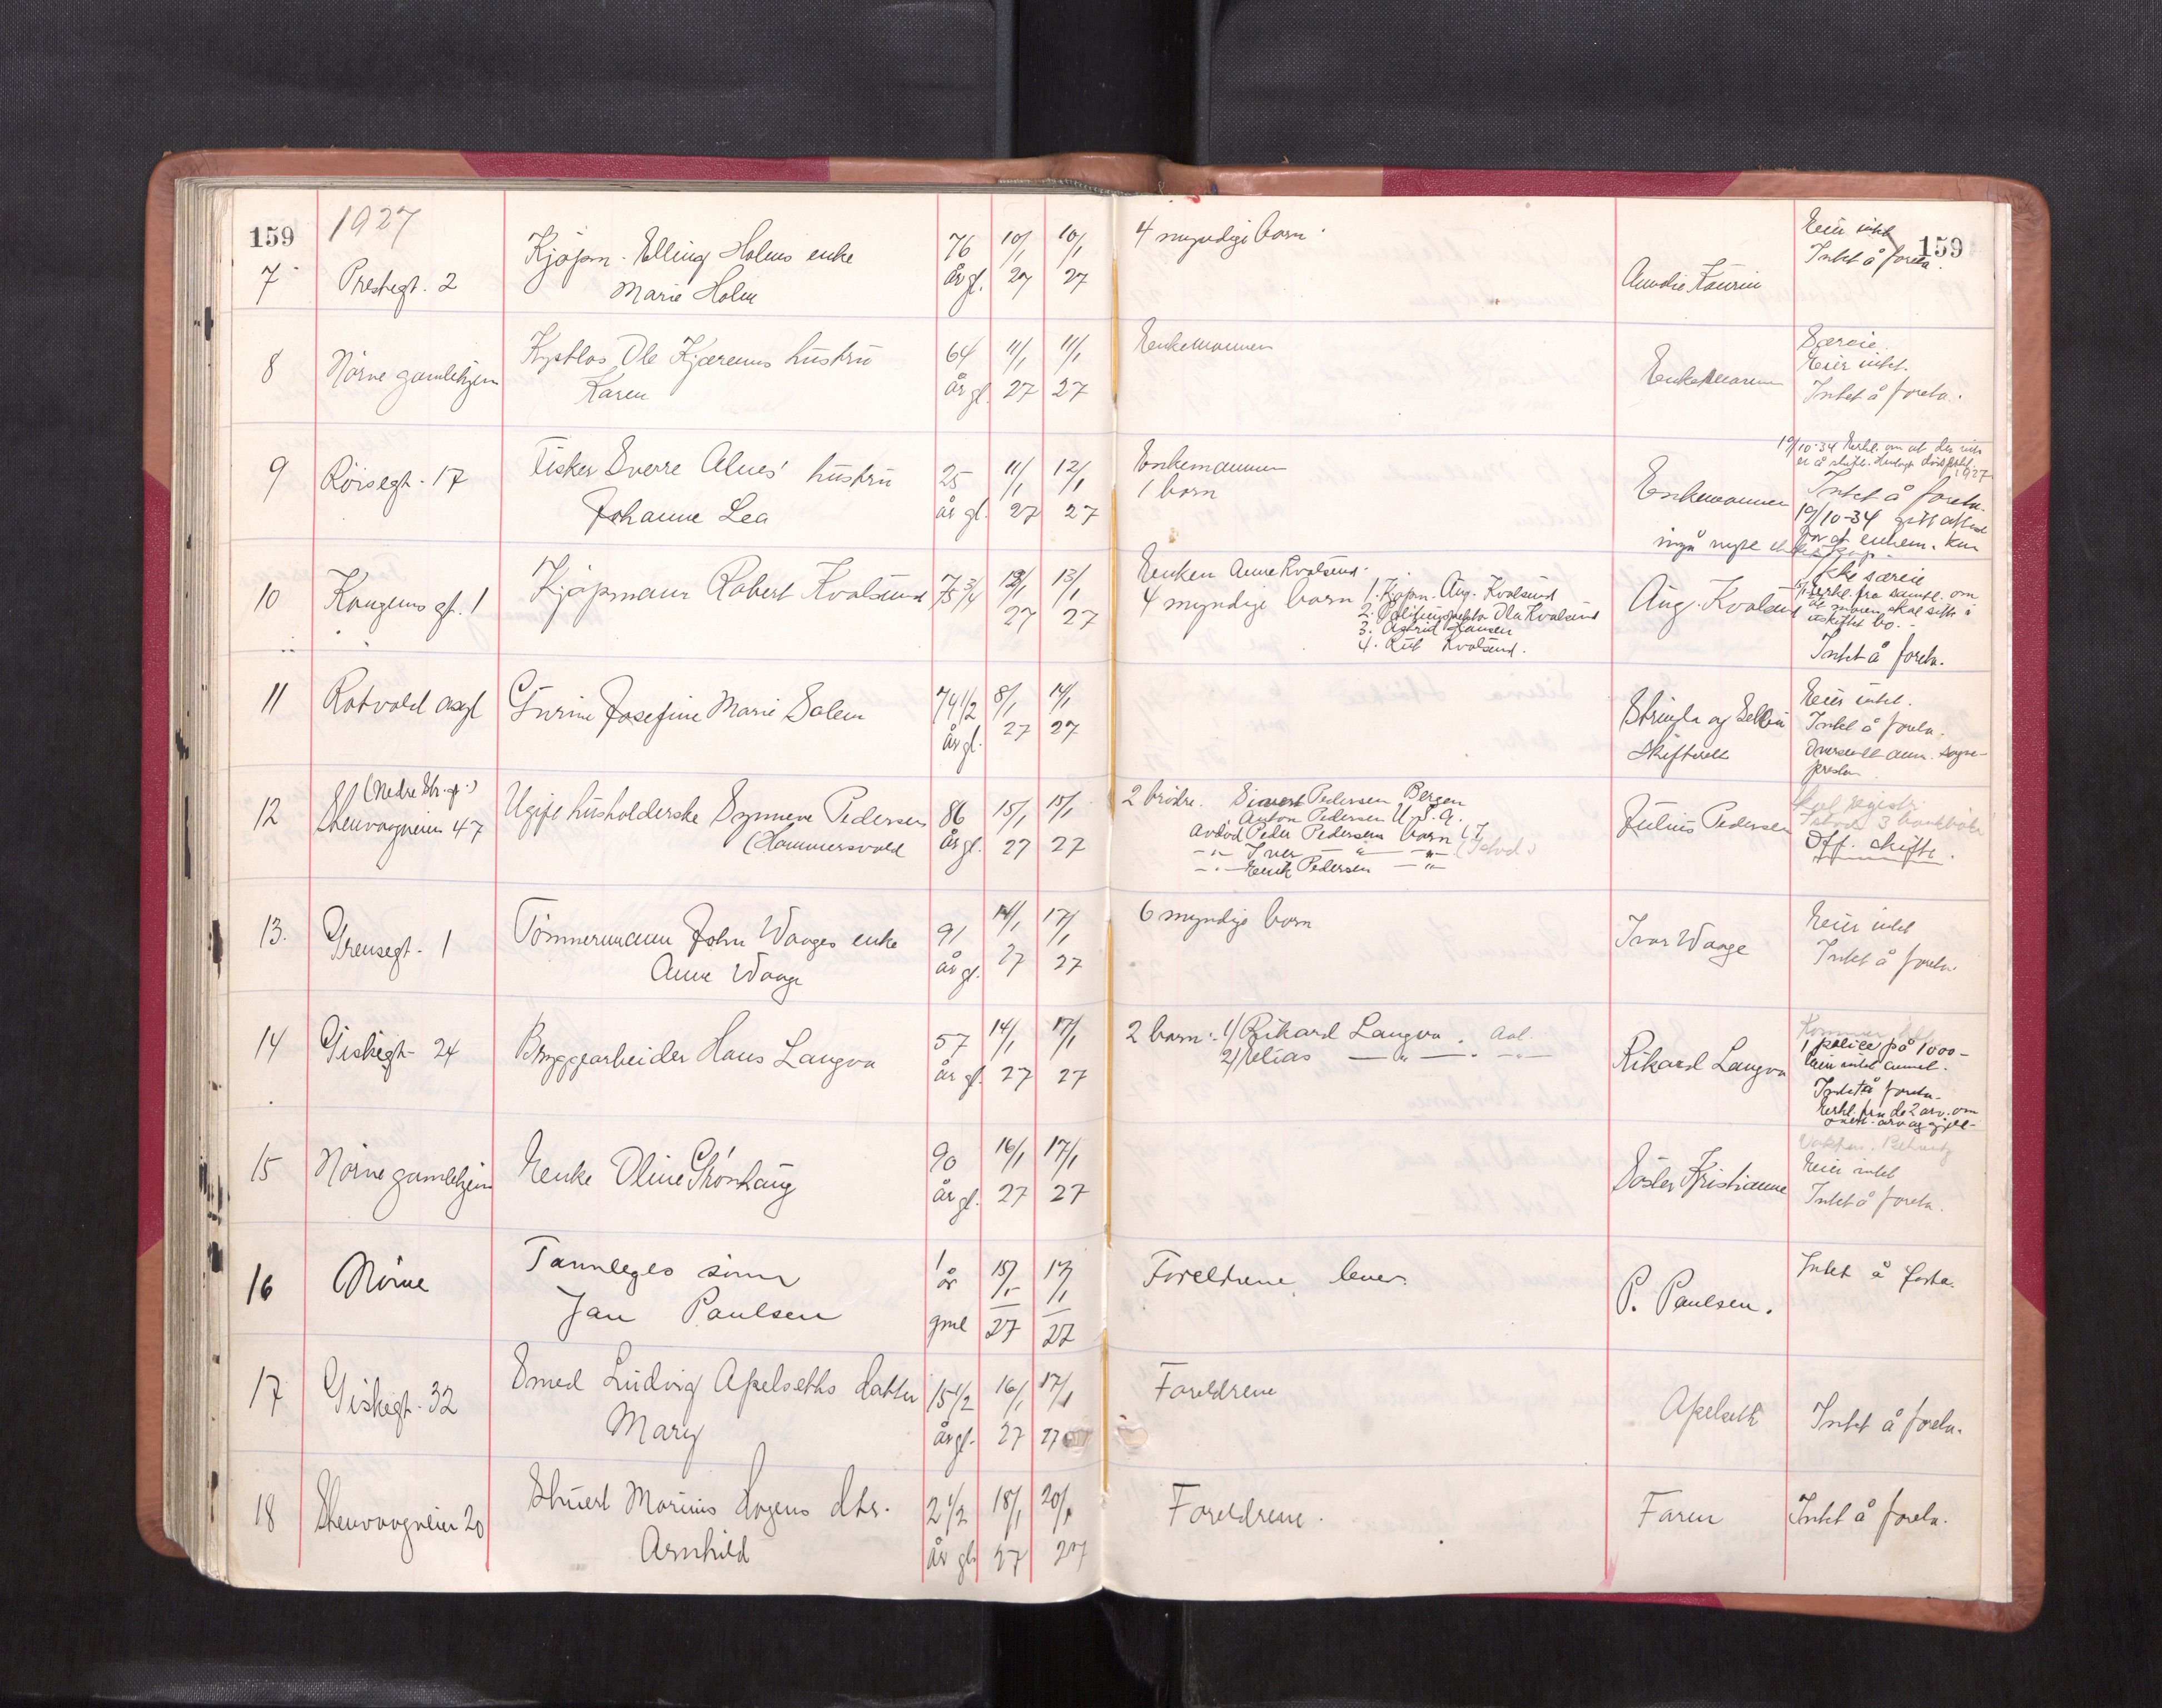 159
1927
159
7
Prestegt. 2
Kjøpm. Elling Holms enke
Marie Holm
76
år gl.
10/1
27
10/1
27
4 myndige barn
Eier intet
Intet å foreta.
8
Nørve gamlehjem
Ole Kjærems hustru
Karen
64
år gl.
11/1
27
11/1
27
Enkemannen
Enkemannen
Særeie.
Eier intet.
Intet å foreta.
9
Røisegt. 17
Fisker Sverre Alnes' hustru
Johanne Lea
25
år gl.
11/1
27
12/1
27
Enkemannen
1 barn
Enkemannen
19/10-34 Erkl. om at der
1927
Intet å foreta.
19/10-34 gitt attest
for at enkem. kan
inngå nytt ekteskap.
10
Kongens gt. 1
Kjøpmann Robert Kvalsund
75 3/4
13/1
27
13/1
27
Enken Anne Kvalsund.
4 myndige barn 1. Kjøpm. Aug. Kvalsund
2. Politiinspektør Ola Kvalsund
3. Astrid Hansen
4. Rut Kvalsund.
Aug. Kvalsund
Ikke særeie
erkl. fra samtl. om
at moren skal sitte i
uskiftet bo.
Intet å foreta.
11
Rotvold asyl
Gurine Josefine Marie Dalen
74 1/2
år gl.
8/1
27
14/1
27
Skifterett
Eier intet.
Intet å foreta.
Oversendt anm. sogne-
presten
12
(Nedre Str. gt.)
Stenvaagveien 47
Ugift husholderske Synneve Pedersen
(Hammersvold
86
år gl.
15/1
27
15/1
27
2 brødre. Sivert Pedersen Bergen
Anton Pedersen U.S.A.
Avdød Peder Pedersens barn
-"- Iver -"- -"-
-"- Henrik Pedersen -"-
Julius Pedersen
3 bankbøker
Off. skifte.
13.
Grensegt. 1
Tømmermann John Waages enke
Anne Waage
91
år gl.
14/1
27
17/1
27
6 myndige barn
Ivar Waage
Eier intet
Intet å foreta.
14
Giskegt. 24
Bryggearbeider Hans Langva
57
år gl.
14/1
27
17/1
27
2 barn: 1/ Rikard Langva. Aal.
2/ Elias -"- -"-
Rikard Langva
1 police på 1000-
Eier intet annet.
Intet å foreta.
Erkl. fra de 2 arv. om
overt. arv og gjeld-
15
Nørve gamlehjem
Enke Oline Grønhaug
90
år gl.
16/1
27
17/1
27
Søster Kristianne
Eier intet
Intet å foreta.
16
Nørve
Tannleges sønn
Jan Paulsen
1
år
gml
15/1
27
17/1
27
Foreldrene lever.
P. Paulsen.
Intet å foreta.
17
Giskegt. 32
Smed Ludvig Apelseths datter
Mary
15 1/2
år gl.
16/1
27
17/1
27
Foreldrene
Apelseth
Intet å foreta.
18
Stenvaagveien 20
Stuert Marius Hagens dtr.
Arnhild
2 1/2
år gl.
18/1
27
20/1
27
Foreldrene.
Faren
Intet å foreta.